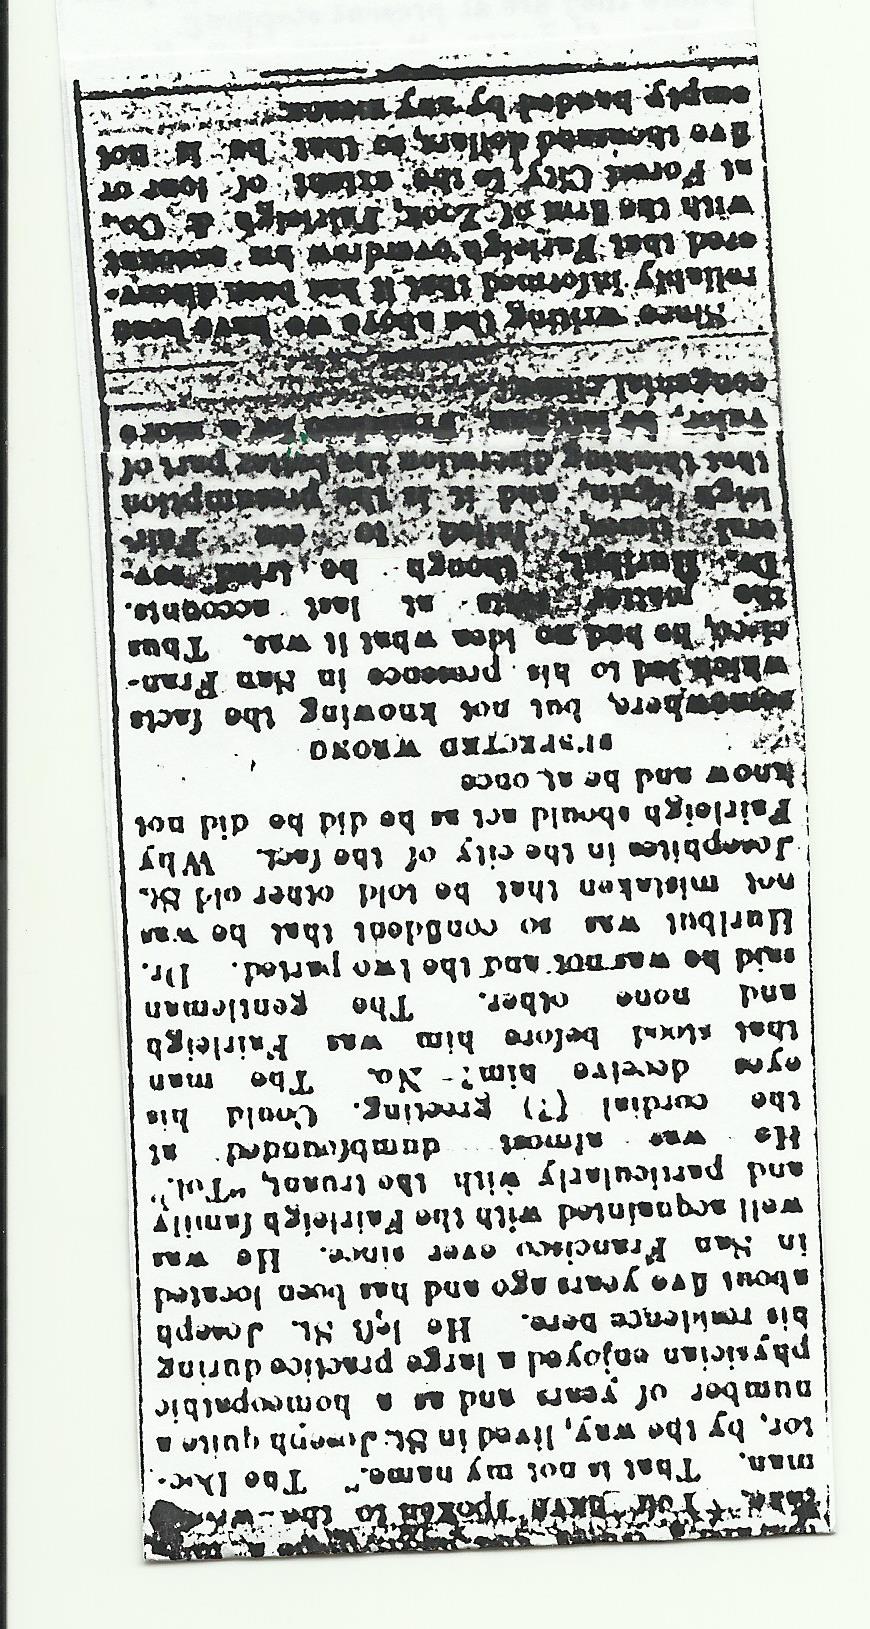 take. You have spoken to the
man. That is not my name." The Doc-
tor, by the way, lived in St. Joseph quite a
number of years and as a homeopathic
physician enjoyed a large practice during
his residence here. He left St. Joseph
about five years ago and has been located
in San Francisco ever since. He was
well acquainted with the Fairleigh family
and particularly with the truant, "Tol."
He was almost dumbfounded at
the cordial (?) greeting. Could his
eyes deceive him?- No. The man
that stood before him was Fairleigh
and none other. The gentleman
said he was not and the two parted. Dr.
Hurlbut was so confident that he was
not mistaken that he told other old St.
Josephites in the city of the fact. Why
Fairleigh should act as he did he did not
know and he at once
SUSPECTED WRONG
somewhere, but not knowing the facts
which led to his presence in San Fran-
cisco, he had no idea what it was. Thus
the matter at last accounts.
Dr. Hurlbut, though he tried sev-
eral times, failed to see Fair-
leigh again, and it is the presumption
that thinking discretion the better part of
valor, he for a more
congenial
Since writing the above we have been
reliably informed that it has been discov-
ered that Fairleigh overdrew his account
with the firm of Zook, Fairleigh & Co.,
at Forest City to the extent of four or
five thousand dollars, so that he is not
empty handed by any means.